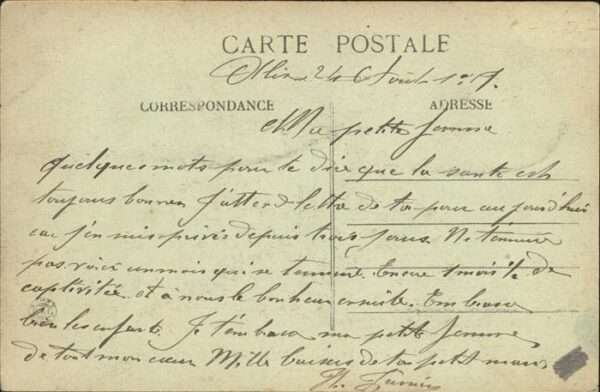 CARTE POSTALE
24 Août
CORRESPONDANCE
ADRESSE
Ma petite femme
quelques mots pour te dire que la santé est
toujours bonne J'attend lettre de toi pour aujourd'hui
car j'en suis privé depuis trois jours. Ne
pas voici un mois qui se termine. Encore 1 mois 1/2 de
captivitée et à nous le bonheur ensuite. Embrasse
bien les enfants. Je t'embrasse ma petite femme
de tout mon cœur Mille baisers de ton petit mari